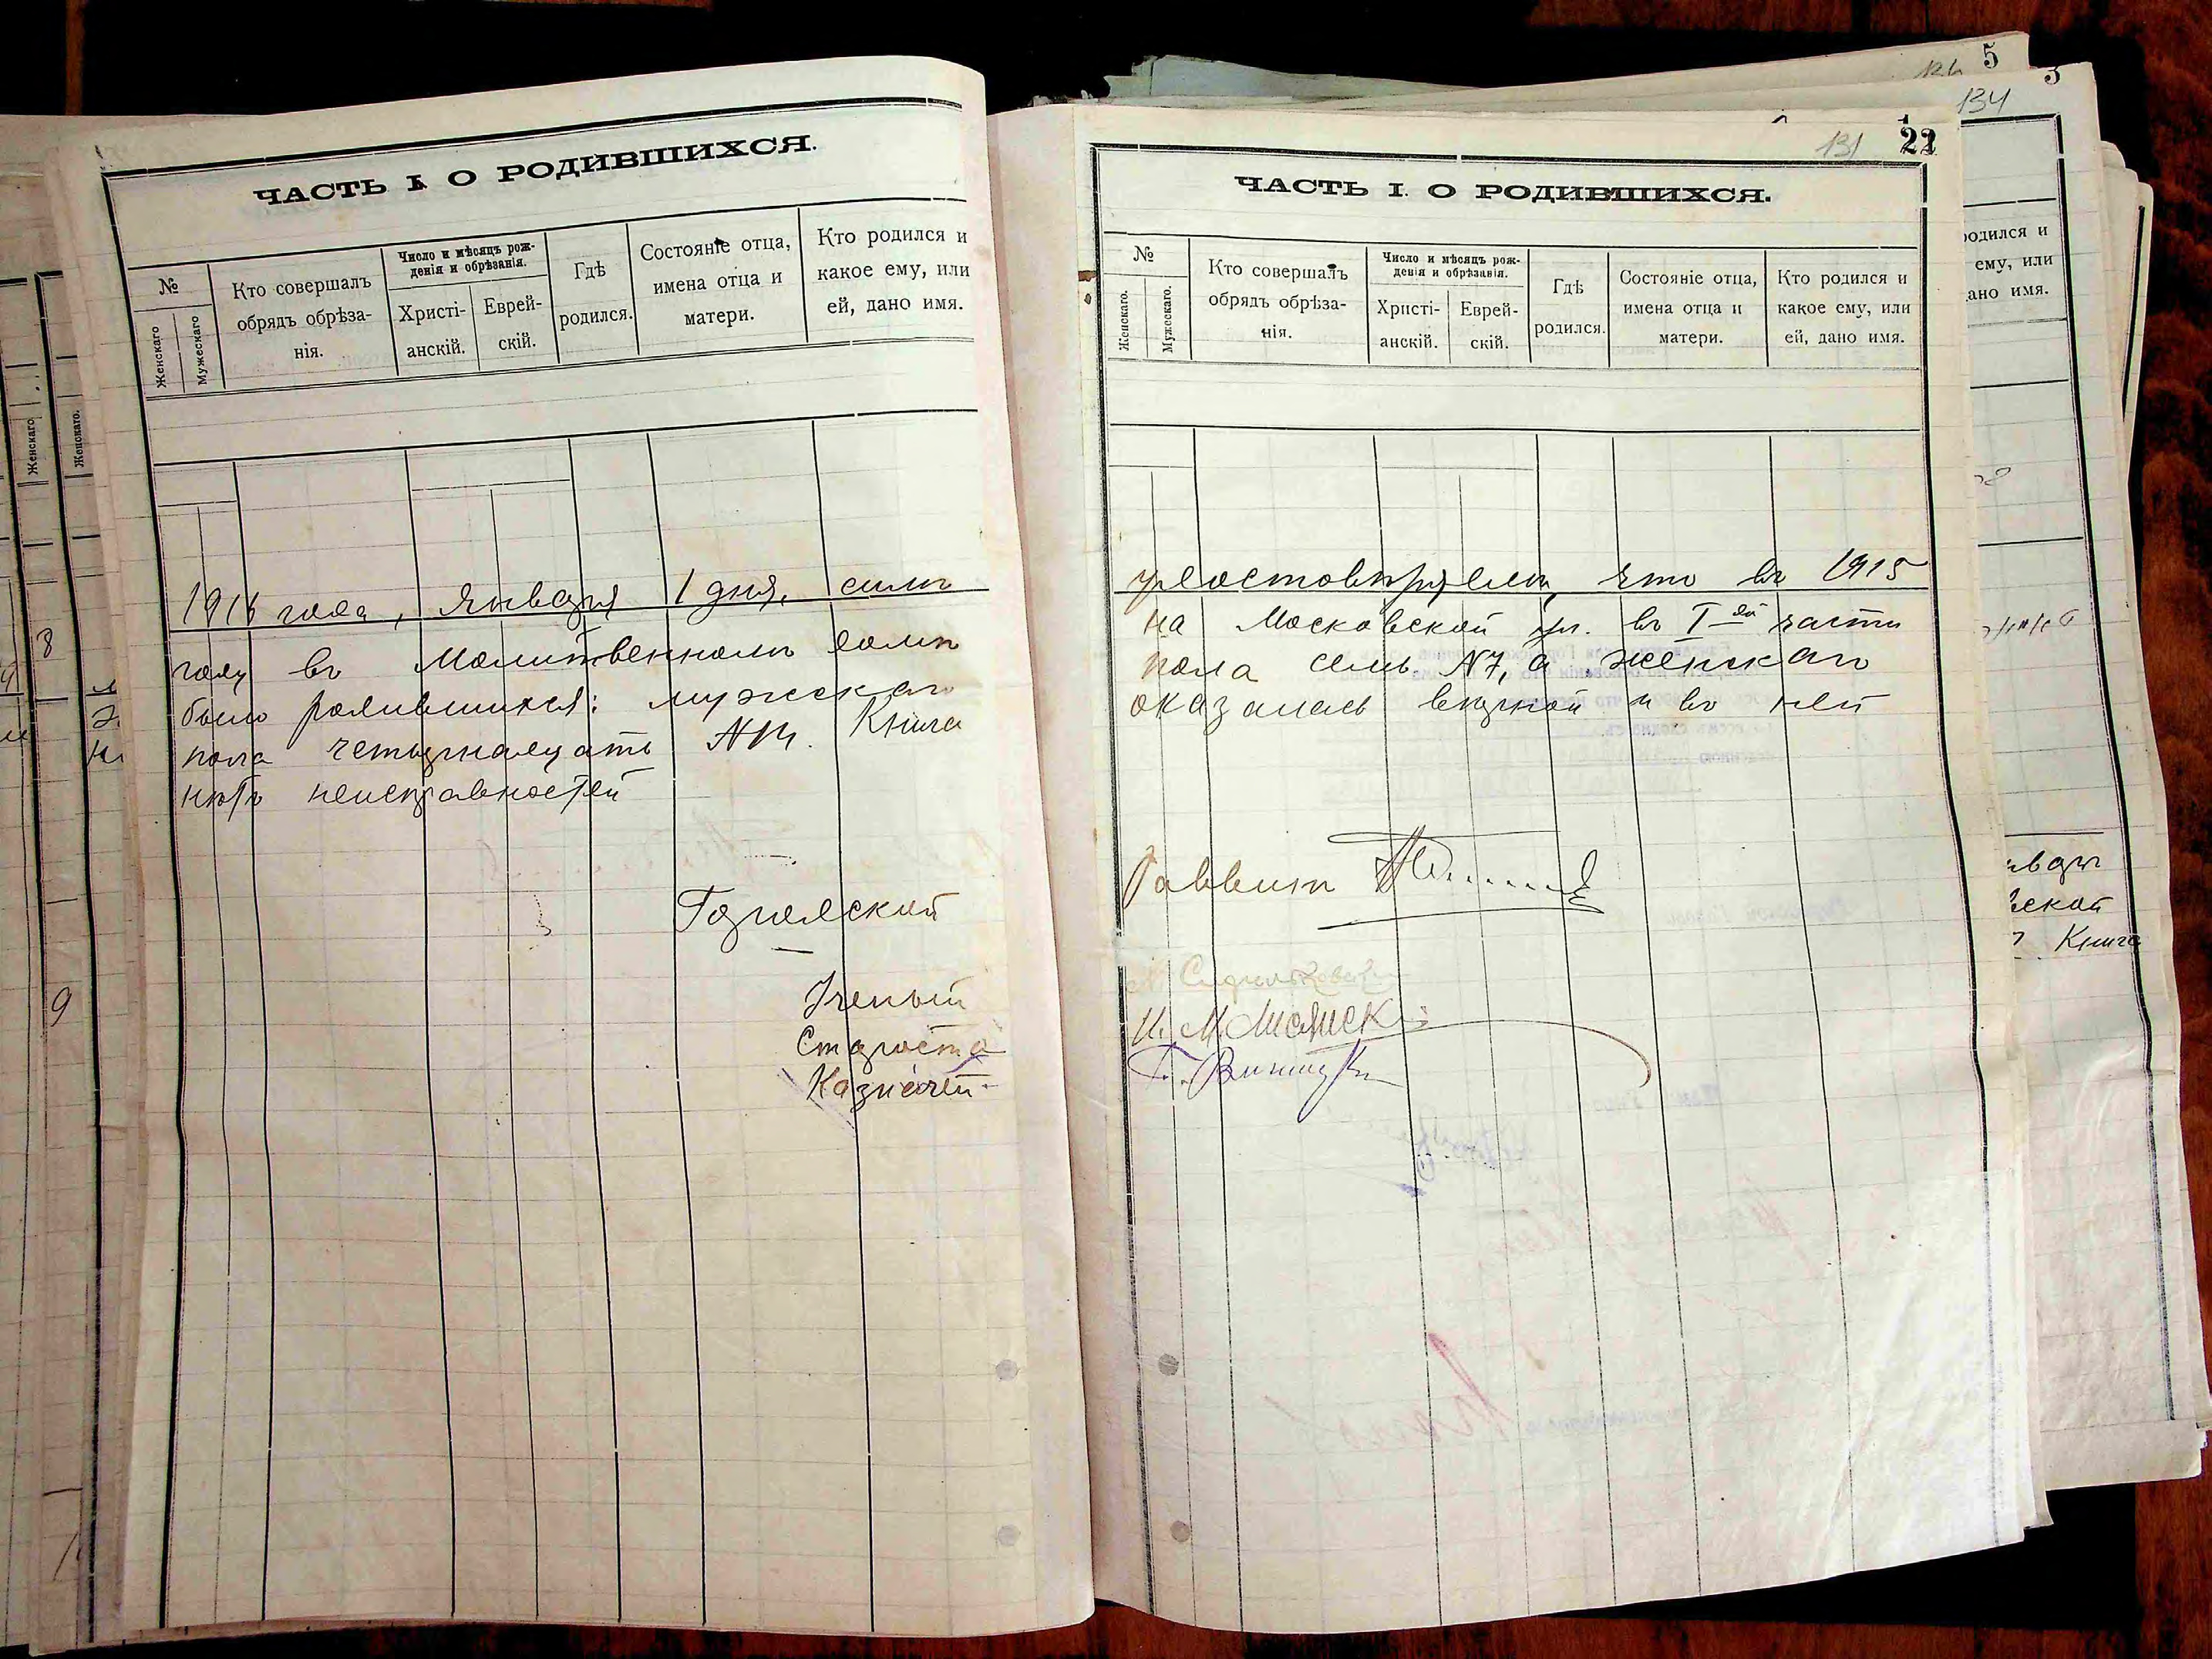 ЧАСТЬ I. О РОДИВШИХСЯ.
№
Женскаго
Мужескаго
Кто совершалъ
обрядъ обрѣза-
нія.
Число и мѣсяцъ рож-
денія и обрѣзанія.
Христі-
анскій.
Еврей-
скій.
Гдѣ
родился.
Состояніе отца,
имена отца и
матери.
Кто родился и
какое ему, или
ей, дано имя.
1916 года, Января 1 дня, симъ
году въ Молитвенномъ домѣ
было родившихся: мужскаго
пола четырнадцать №14. Книга
нѣтъ неисправностей
Городской
Ученый
Староста
Казначей
131 22
ЧАСТЬ I. О РОДИВШИХСЯ.
№
Женскаго.
Мужескаго.
Кто совершалъ
обрядъ обрѣза-
нія.
Число и мѣсяцъ рож-
денія и обрѣзанія.
Христі-
анскій.
Еврей-
скій.
Гдѣ
родился.
Состояніе отца,
имена отца и
матери.
Кто родился и
какое ему, или
ей, дано имя.
удостовѣряемъ, что въ 1915
на Московской ул. въ I-ой части
пола семь №7, а женскаго
оказалась вѣрной и въ ней
Раввинъ
5
134
одился и
ему, или
ано имя.
Книга
Женскаго
Женскаго.
8
9